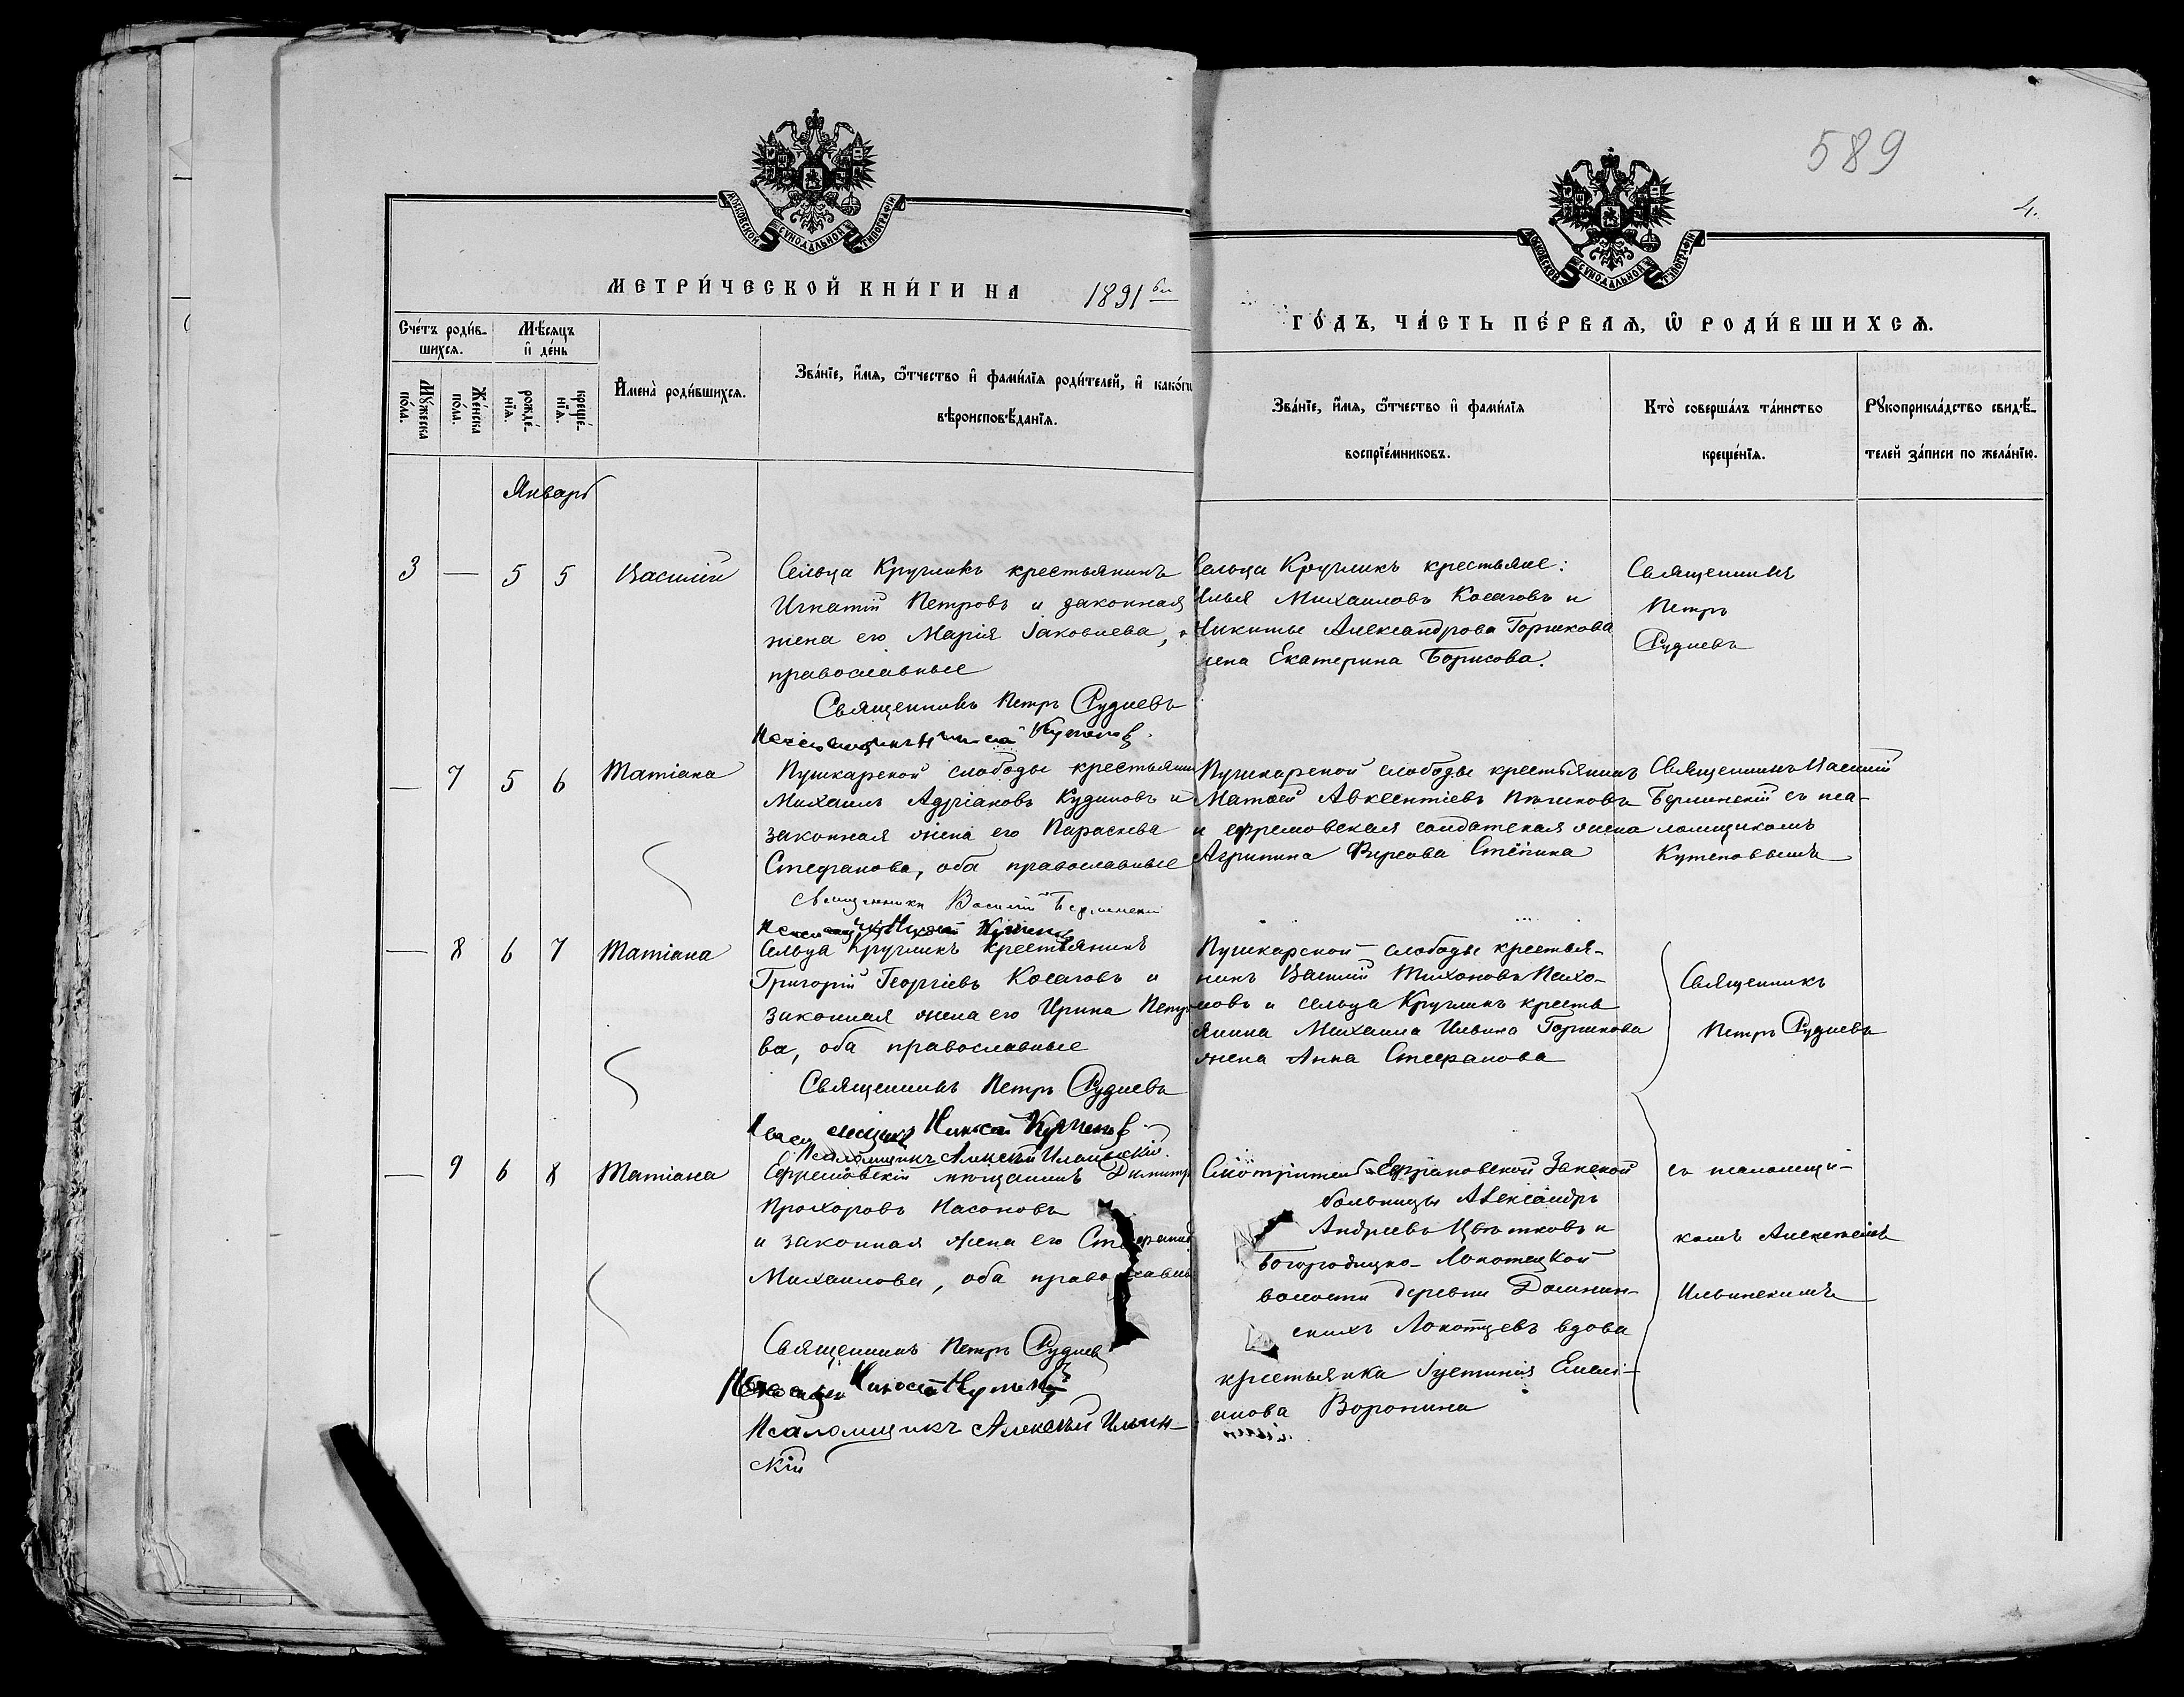 589
4.
МОСКОВСКОЙ СУНОДАЛЬНОЙ ТИПОГРАФІИ
МОСКОВСКОЙ СУНОДАЛЬНОЙ ТИПОГРАФІИ
МЕТРИ́ЧЕСКОЙ КНИ́ГИ НА 1891
ГО́ДЪ, ЧА́СТЬ ПЕ́РВАѦ, Ѽ РОДИ́ВШИХСѦ.
Сче́тъ роди́в-
шихсѧ.
Мѣ́сѧцъ
и҆ де́нь
Мꙋ́жеска
по́ла.
Же́нска
по́ла.
рожде́-
нїѧ.
креще́-
нїѧ.
И҆мена̀ роди́вшихсѧ.
Зва́нїе, и҆́мѧ, ѻ҆́тчество и҆ фами́лїѧ роди́телей, и҆ како́гѡ
вѣроисповѣ́данїѧ.
Зва́нїе, и҆́мѧ, ѻ҆́тчество и҆ фами́лїѧ
воспрїе́мниковъ.
Кто̀ соверша́лъ та́инство
креще́нїѧ.
Рꙋкоприкла́дство свидѣ́-
телей за́писи по жела́нїю.
Январь
3 — 5 5 Василій
Сельца Кругликъ крестьянинъ
Игнатій Петровъ и законная
жена его Марія Іаковлева,
православные
Священникъ Петръ Руднев
Кутепов
Сельца Кругликъ крестьяне:
Илья Михаиловъ Косаговъ и
Никиты Александрова Горшкова
жена Екатерина Борисова.
Священникъ
Петръ
Рудневъ
— 7 5 6 Татіана
Пушкарской слободы крестьянин
Михаилъ Адріановъ Кудиновъ и
законная жена его Параскева
Стефанова, оба православные
Священникъ Василій
Пушкарской слободы крестьянинъ
Матѳей Авксентіевъ
и ефремовская солдатская жена
Агрипина Фирсова Стёпина
Священникъ Василій
съ пса-
ломщикомъ
Кутеповымъ
— 8 6 7 Татіана
Сельца Кругликъ крестьянинъ
Григорій Георгіевъ Косаговъ и
законная жена его Ирина Петро
ва, оба православные
Священникъ Петръ Рудневъ
Кутепов
Псаломщикъ Алексѣй Ильинскій.
Пушкарской слободы крестья-
нинъ Василій Тихоновъ
и сельца Кругликъ кресть
янина Михаила Ильина Горшкова
жена Анна Стефанова
Священникъ
Петръ Рудневъ
— 9 6 8 Татіана
Ефремовскій мѣщанинъ Димитр
Прохоровъ Насоновъ
и законная жена его
Михаилова, оба
Священникъ Петръ Руднев
Псаломщикъ Алексѣй Ильин-
скій
Смотритель Земской
больницы Александръ
Андреевъ Цвѣтковъ и
Богородицко- Локотецкой
волости деревни Домнин-
скихъ Локотцевъ вдова
крестьянка Іустинія Емелі-
анова Воронина
съ псаломщи-
комъ Алексѣемъ
Ильинскимъ